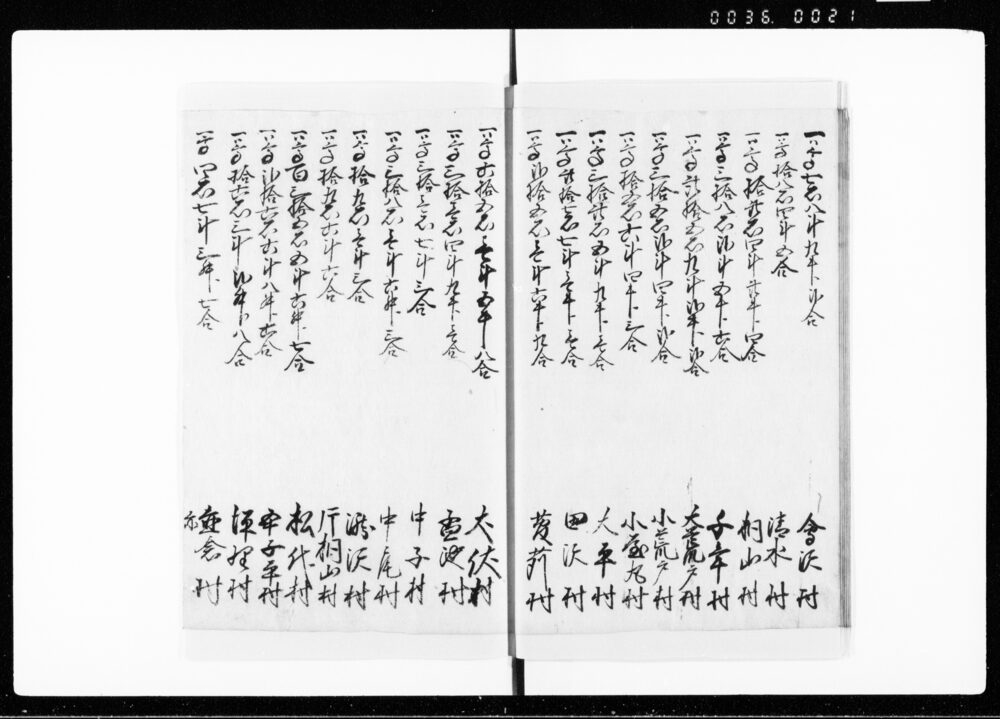 0036. 0021
一高七石八斗九升弐合 会沢村
一高拾八石四斗五合 清水村
一高拾弐石四斗弐升四合 桐山村
一高三拾八石弐斗五升六合 千年村
一高弐拾五石九斗弐升弐合 大荒戸村
一高三拾五石弐斗四升弐合 小荒戸村
一高拾五石六斗四升三合 小屋丸村
一高三拾弐石五斗九升壱合 大平村
一高弐拾七石七斗壱升壱合 田沢村
一高弐拾五石壱斗六升九合 村
一高六拾五石壱斗五升八合 犬伏村
一高三拾壱石四斗九升壱合 孟地村
一高三拾壱石七斗三合 中子村
一高三拾八石壱斗六升三合 中尾村
一高拾九石壱斗三合 滝沢村
一高拾九石六斗六合 片桐山村
一高百三拾五石五斗六升七合 松代村
一高弐拾六石六斗八升六合 平村
一高拾六石三斗弐升八合 村
一高四石七斗三升七合 村